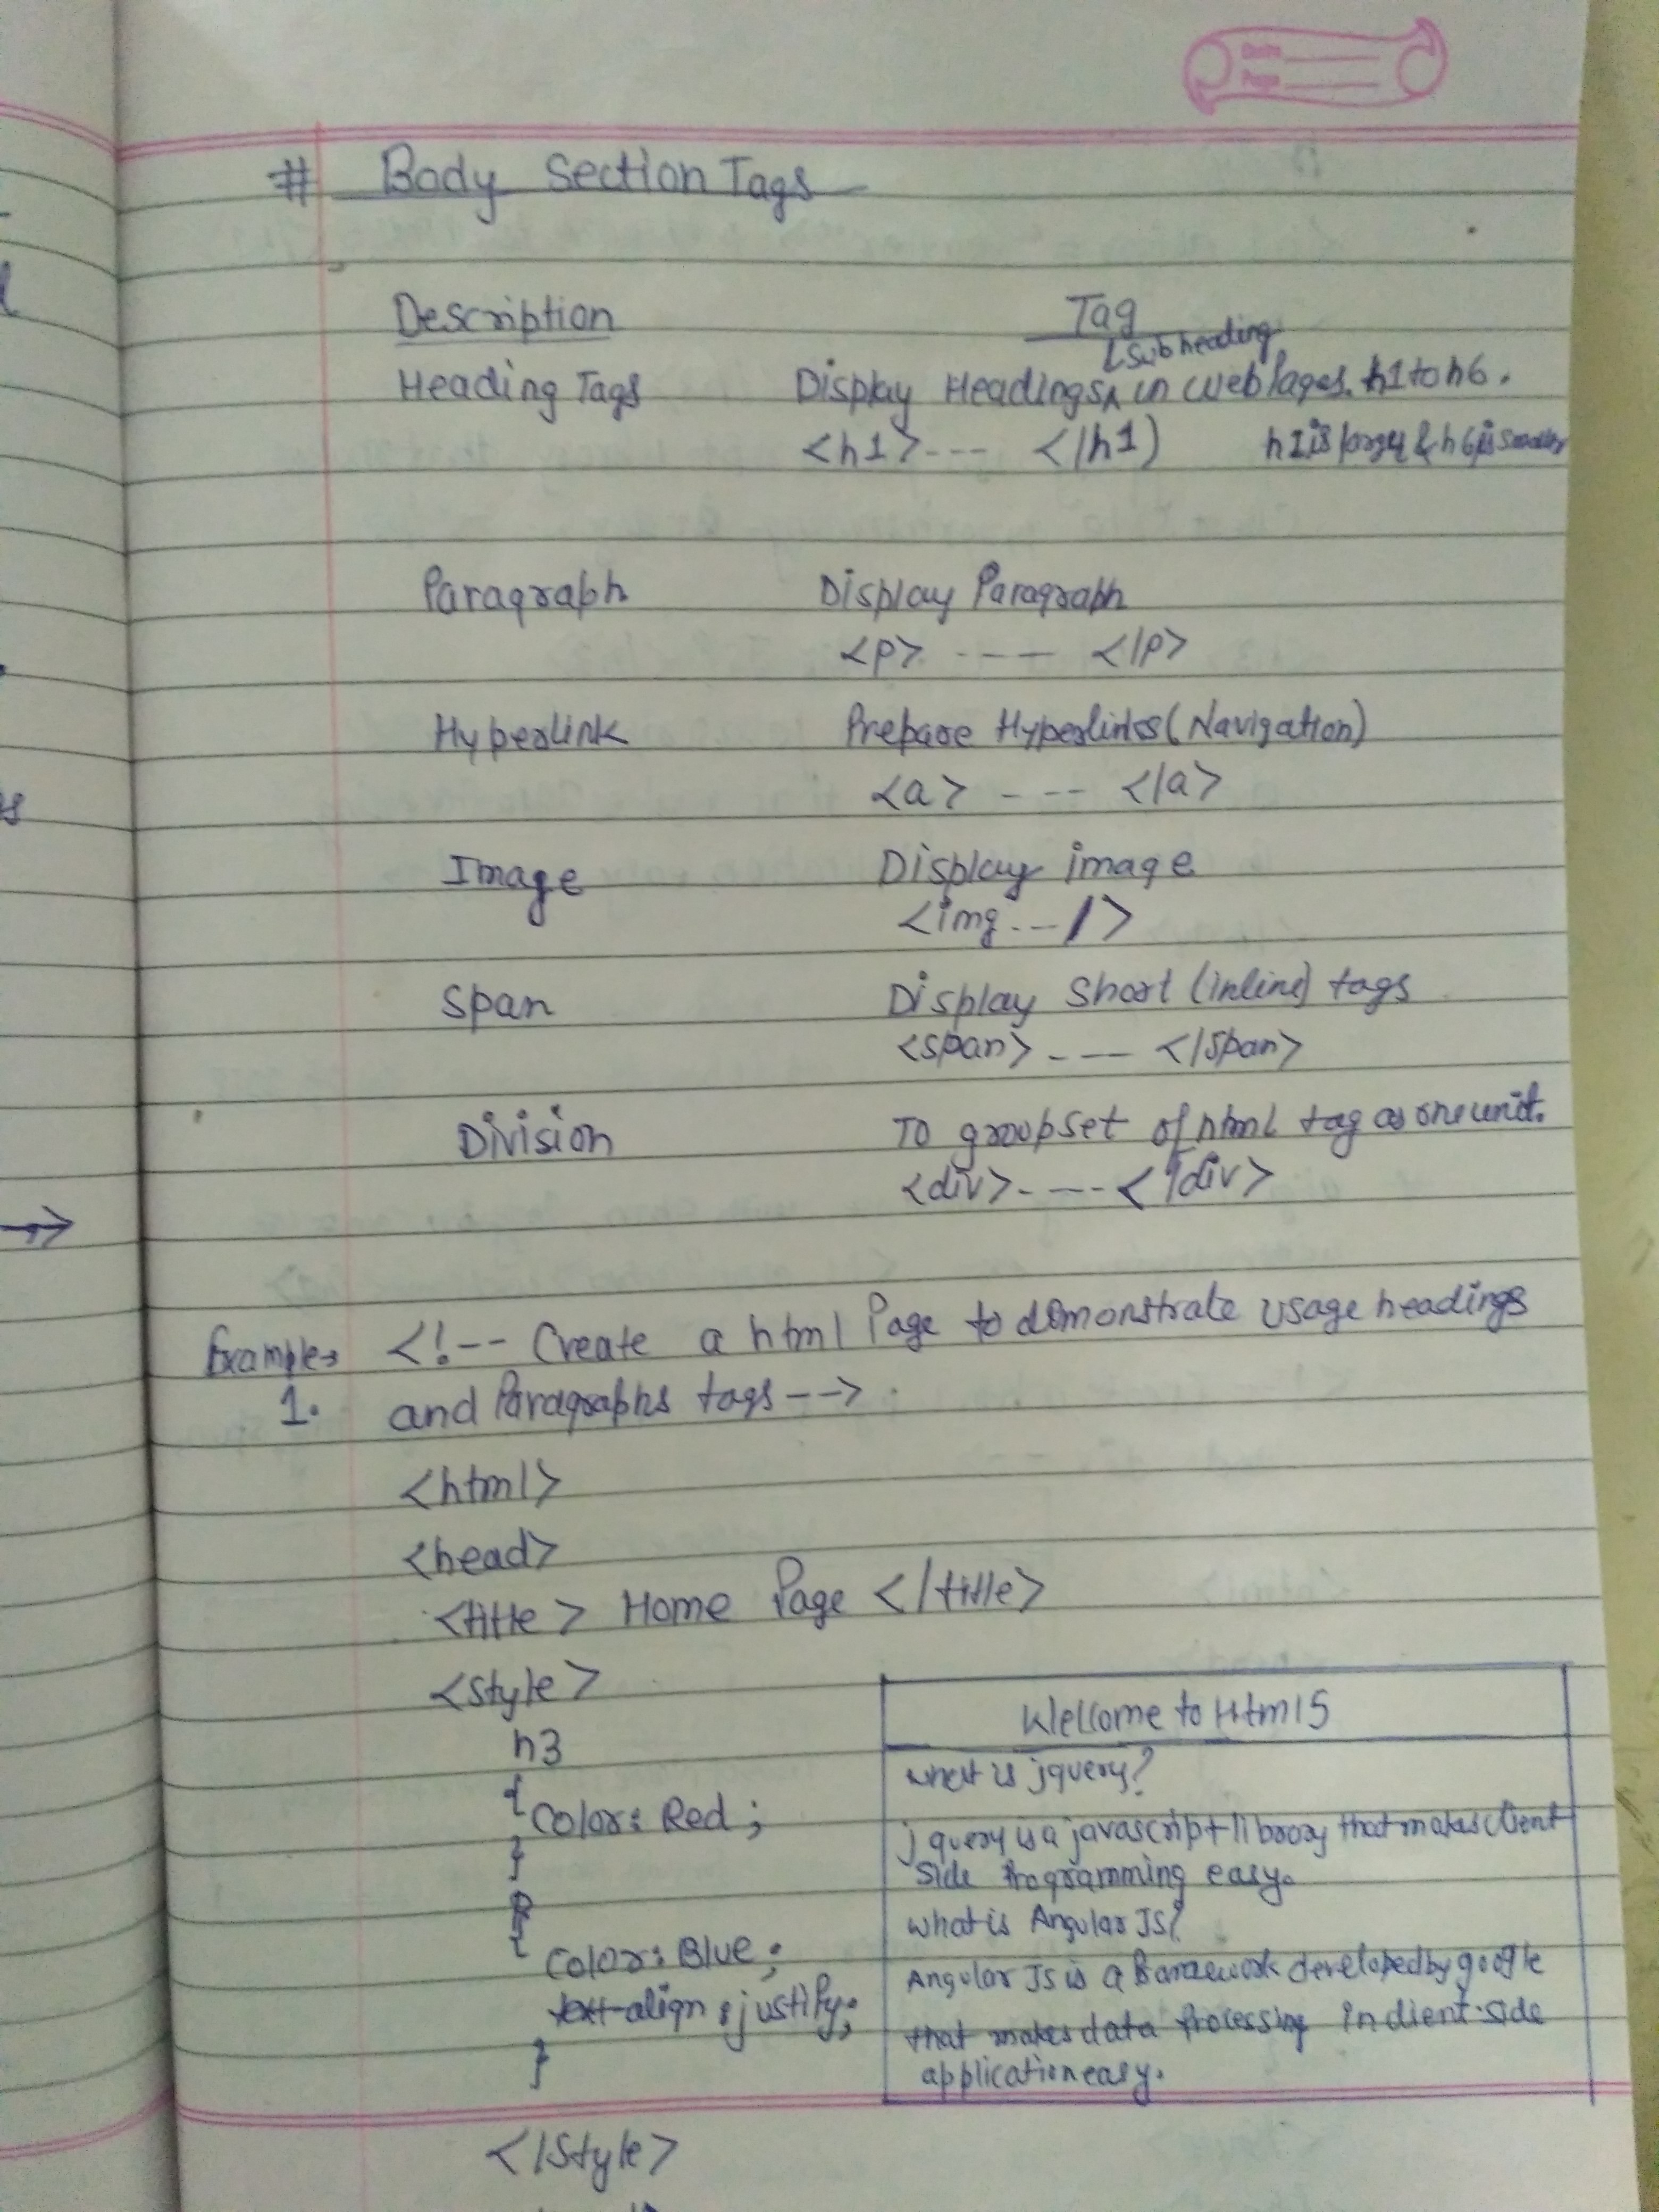 Date
Page
# Body Section Tags
Description Tag
Subheading
Heading Tags Display Headings in web Pages. h1 to h6.
<h1> --- </h1) h1 is larger & h6 is smaller
Paragraph Display Paragraph
<p> --- </p>
Hyperlink Prepare Hyperlinks (Navigation)
<a> --- </a>
Image Display image
<img --- />
Span Display Short (inline) tags
<span> --- </span>
Division To group set of html tag as one unit.
<div> --- </div>
Example → <!-- Create a html Page to demonstrate usage headings
1. and Paragraphs tags -->
<html>
<head>
<title> Home Page </title>
<style>
h3
{ Color: Red ;
}
P
{
Color: Blue ;
text-align : justify;
}
</style>
Wellcome to Html5
what is jquery?
jquery is a javascript library that makes client
side Programming easy.
what is Angular JS?
Angular JS is a framework developed by google
that makes data Processing in client-side
application easy.